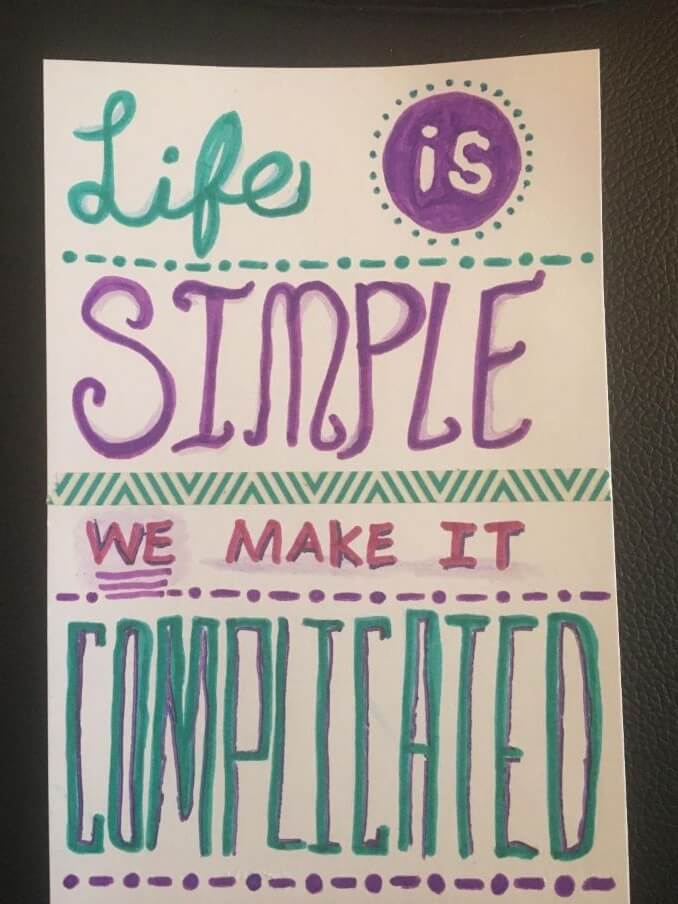 Life is
SIMPLE
WE MAKE IT
COMPLICATED